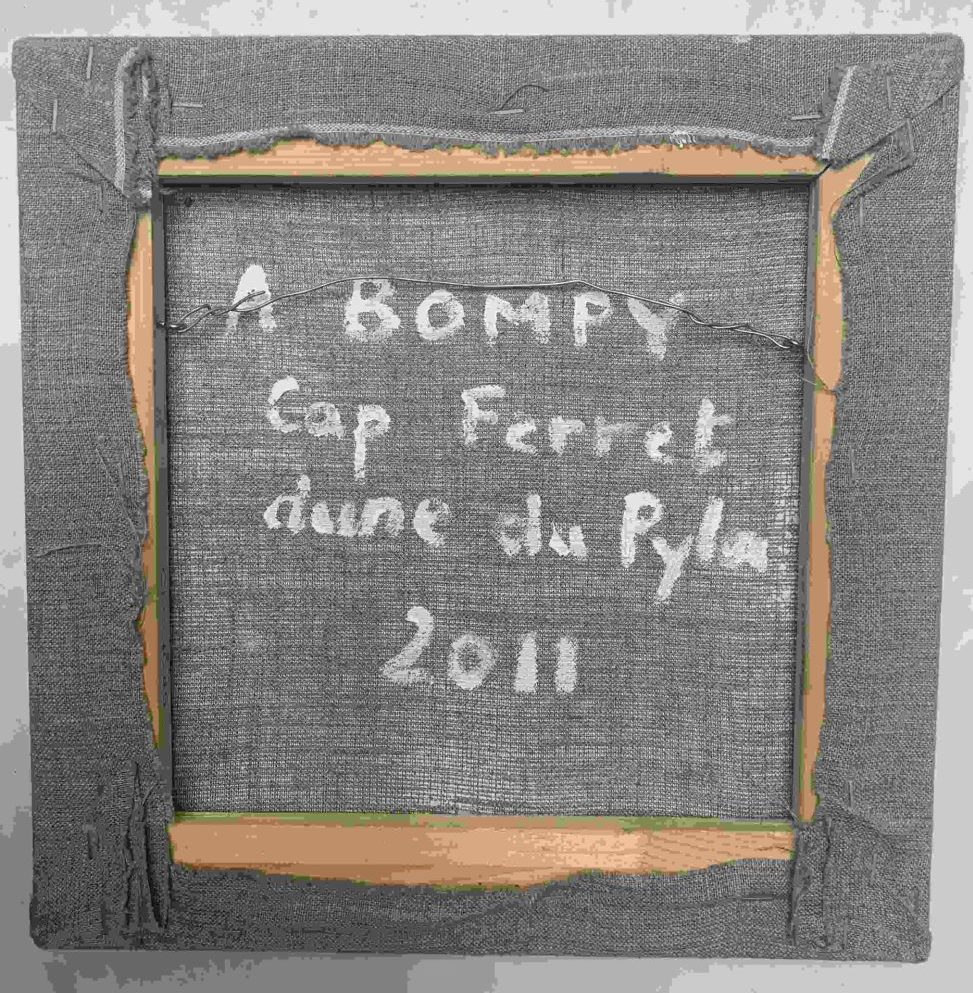 A BOMPY
Cap Ferret
dune du Pyla
2011